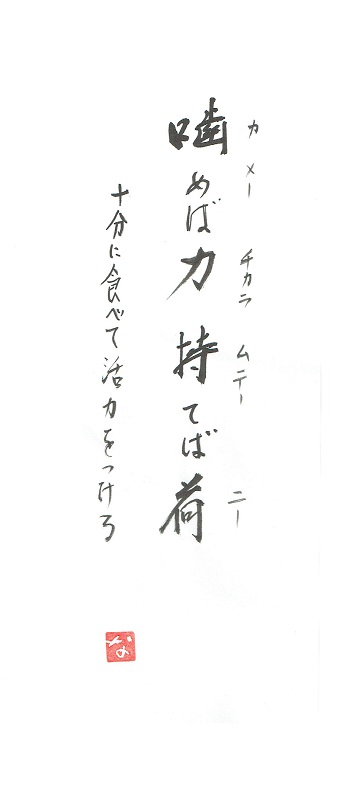 カメー チカラ ムテー ニー
噛めば力 持てば荷
十分に食べて活力をつける
な